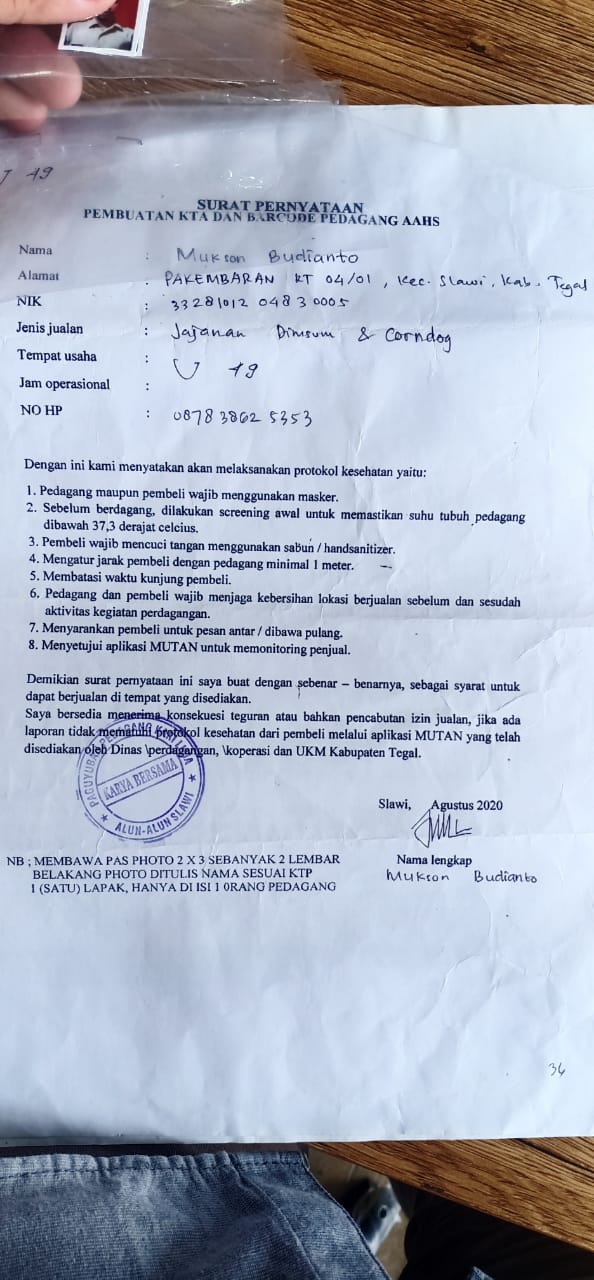 U 49
SURAT PERNYATAAN
PEMBUATAN KTA DAN BARCODE PEDAGANG AAHS
Nama : Mukson Budianto
Alamat : PAKEMBARAN RT 04/01, Kec. Slawi, Kab. Tegal
NIK : 33281012 0483 0005
Jenis jualan : Jajanan Dimsum & Corndog
Tempat usaha : U 49
Jam operasional :
NO HP : 0878 3862 5353
Dengan ini kami menyatakan akan melaksanakan protokol kesehatan yaitu:
1. Pedagang maupun pembeli wajib menggunakan masker.
2. Sebelum berdagang, dilakukan screening awal untuk memastikan suhu tubuh pedagang
dibawah 37,3 derajat celcius.
3. Pembeli wajib mencuci tangan menggunakan sabun / handsanitizer.
4. Mengatur jarak pembeli dengan pedagang minimal 1 meter.
5. Membatasi waktu kunjung pembeli.
6. Pedagang dan pembeli wajib menjaga kebersihan lokasi berjualan sebelum dan sesudah
aktivitas kegiatan perdagangan.
7. Menyarankan pembeli untuk pesan antar / dibawa pulang.
8. Menyetujui aplikasi MUTAN untuk memonitoring penjual.
Demikian surat pernyataan ini saya buat dengan sebenar – benarnya, sebagai syarat untuk
dapat berjualan di tempat yang disediakan.
Saya bersedia menerima konsekuesi teguran atau bahkan pencabutan izin jualan, jika ada
laporan tidak mematuhi protokol kesehatan dari pembeli melalui aplikasi MUTAN yang telah
disediakan oleh Dinas \perdagangan, \koperasi dan UKM Kabupaten Tegal.
PAGUYUBAN PEDAGANG
KARYA BERSAMA
ALUN-ALUN SLAWI
Slawi, Agustus 2020
Nama lengkap
Mukson Budianto
NB ; MEMBAWA PAS PHOTO 2 X 3 SEBANYAK 2 LEMBAR
BELAKANG PHOTO DITULIS NAMA SESUAI KTP
1 (SATU) LAPAK, HANYA DI ISI 1 0RANG PEDAGANG
34